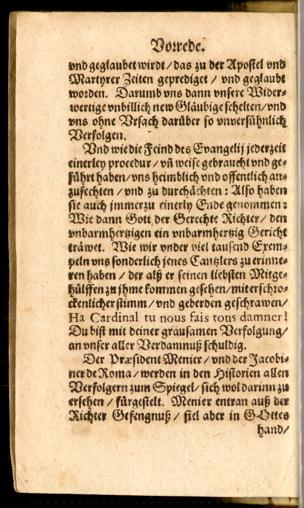 Vorrede.
vnd geglaubet wirdt / das zu der Apostel vnd
Martyrer Zeiten geprediget / vnd geglaubt
worden. Darumb vns dann vnsere Wider-
wertige vnbillich new Gläubige schelten / vnd
vns ohne Vrsach darüber so vnversühnlich
Verfolgen.
Vnd wie die Feind des Evangelij jederzeit
einerley procedur / vñ weise gebraucht vnd ge-
führt haben / vns heimlich vnd offentlich an-
zufechten / vnd zu durchächten: Also haben
sie auch immerzu einerly Ende genommen:
Wie dann Gott der Gerechte Richter / den
vnbarmhertzigen ein vnbarmhertzig Gericht
träwet. Wie wir vnder viel tausend Exem-
peln vns sonderlich jenes Cantzlers zu erinne-
ren haben / der alß er seinen liebsten Mitge-
hülffen zu jhme kommen gesehen / mit erschro-
ckenlicher stimm / vnd geberden geschrawen /
Ha Cardinal tu nous fais tous damner!
Du bist mit deiner grausamen Verfolgung /
an vnser aller Verdamnuß schuldig.
Der Præsident Menier / vnd der Jacobi-
ner de Roma / werden in den Historien allen
Verfolgern zum Spiegel / sich wol darinn zu
ersehen / fürgestelt. Menier entran auß der
Richter Gefengnuß / fiel aber in GOttes
hand /